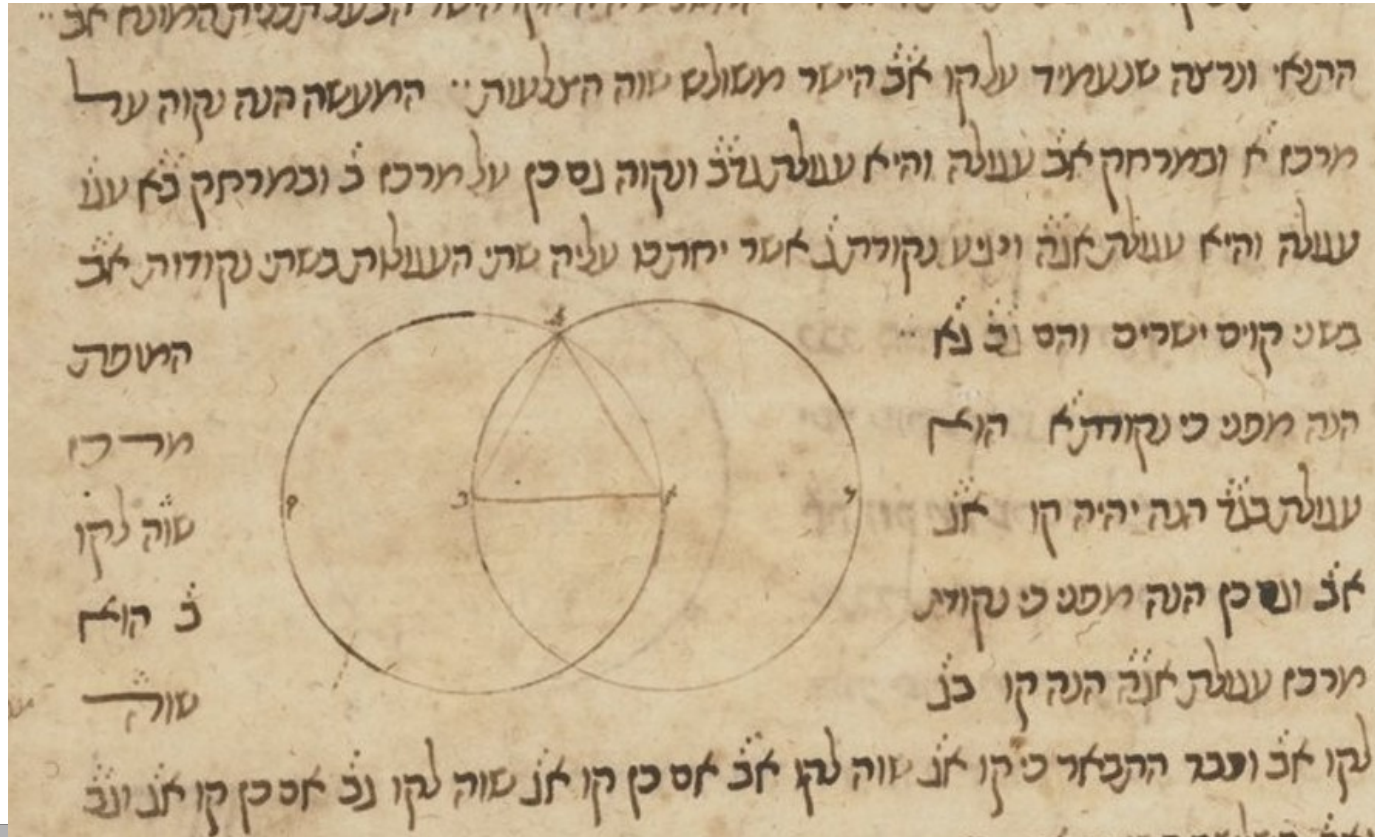 המונח אב
ונרצה שנעמיד על קו אב הישר משולש שוה הצלעות המעשה הנה נקוה על
מרכז א ובמרחק אב עגולה והיא עגולת גדב ונקוה גם כן על מרכז ב ובמרחק בא עגו
עגולה והיא עגולת אגה ונגיע נקודת ג אשר יחתכו עליה שתי העגולות בשתי נקודות אב
בשני קוים ישרים והם גב גא המופת
הנה מפני כי נקודת א הוא מרכז
עגולת בגד הנה יהיה קו אג שוה לקו
אב וגם כן הנה מפני כי נקודת ב הוא
מרכז עגולת אגה הנה קו בג שוה
לקו אב וכבר התבאר כי קו אג שוה לקו אב אם כן קו אג שוה לקו גב אם כן קו אג וגב
ג
ד א ב ה